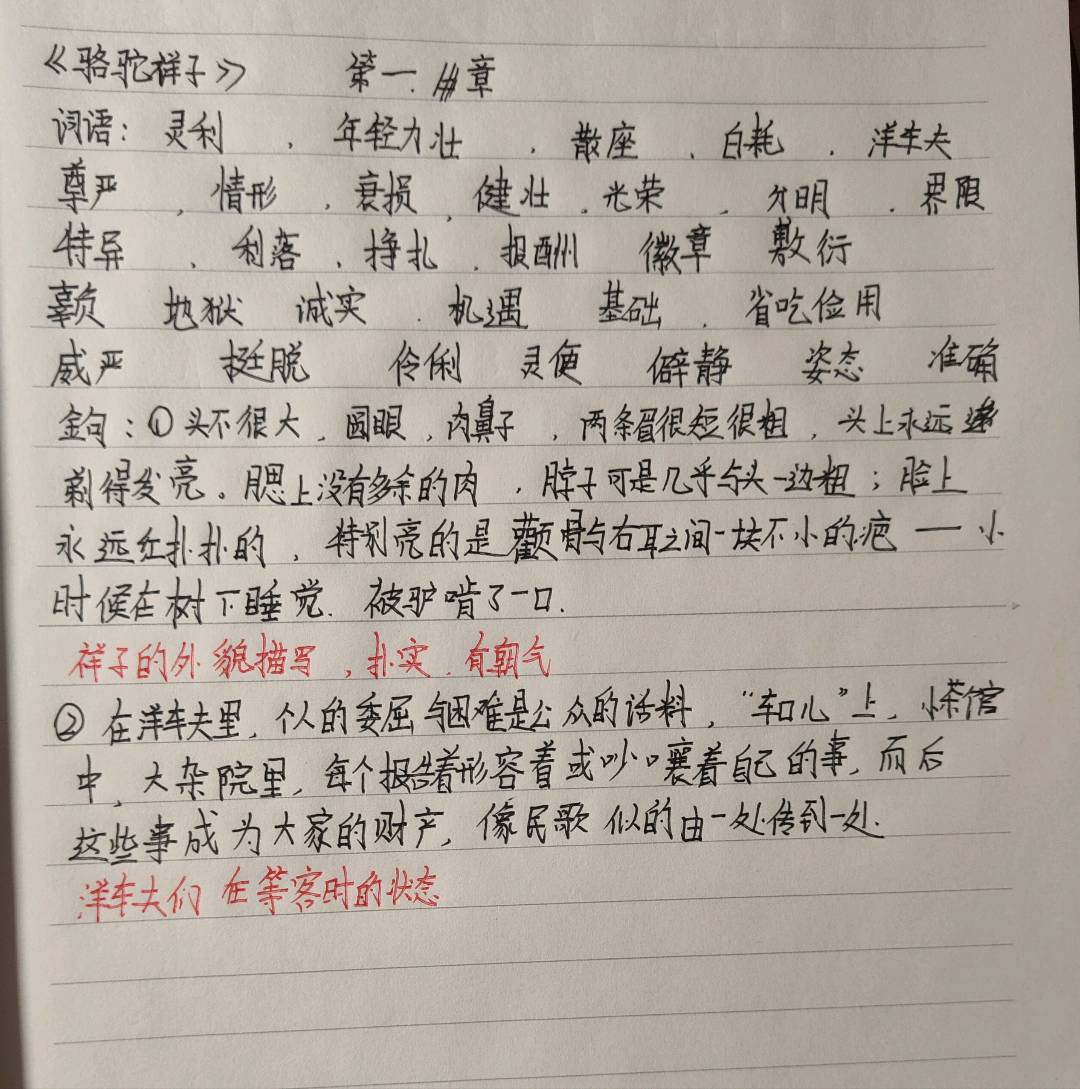 《骆驼祥子》 第一.章
词语：灵利 、年轻力壮 、散座 、白耗 、洋车夫
尊严 、情形 、衰损 、健壮 、光荣 、分明 、界限
特异 、利落 、挣扎 、报酬 徽章 敷衍
辜负 地狱 诚实 、机遇 基础 、省吃俭用
威严 挺脱 伶俐 灵便 僻静 姿态 准确
金句：①头不很大，圆眼，肉鼻子，两条眉很短很粗，头上永远
剃得发亮。腮上没有多余的肉，脖子可是几乎与头一边粗；脸上
永远红扑扑的，特别亮的是颧骨与右耳之间一块不小的疤——小
时候在树下睡觉.被驴啃了一口.
祥子的外貌描写，扑实.有朝气
②在洋车夫里，个人的委屈与困难是公众的话料，“车口儿”上，小茶馆
中，大杂院里，每个报告着形容着或吵嚷着自己的事，而后
这些事成为大家的财产，像民歌似的由一处传到一处.
洋车夫们在等客时的状态